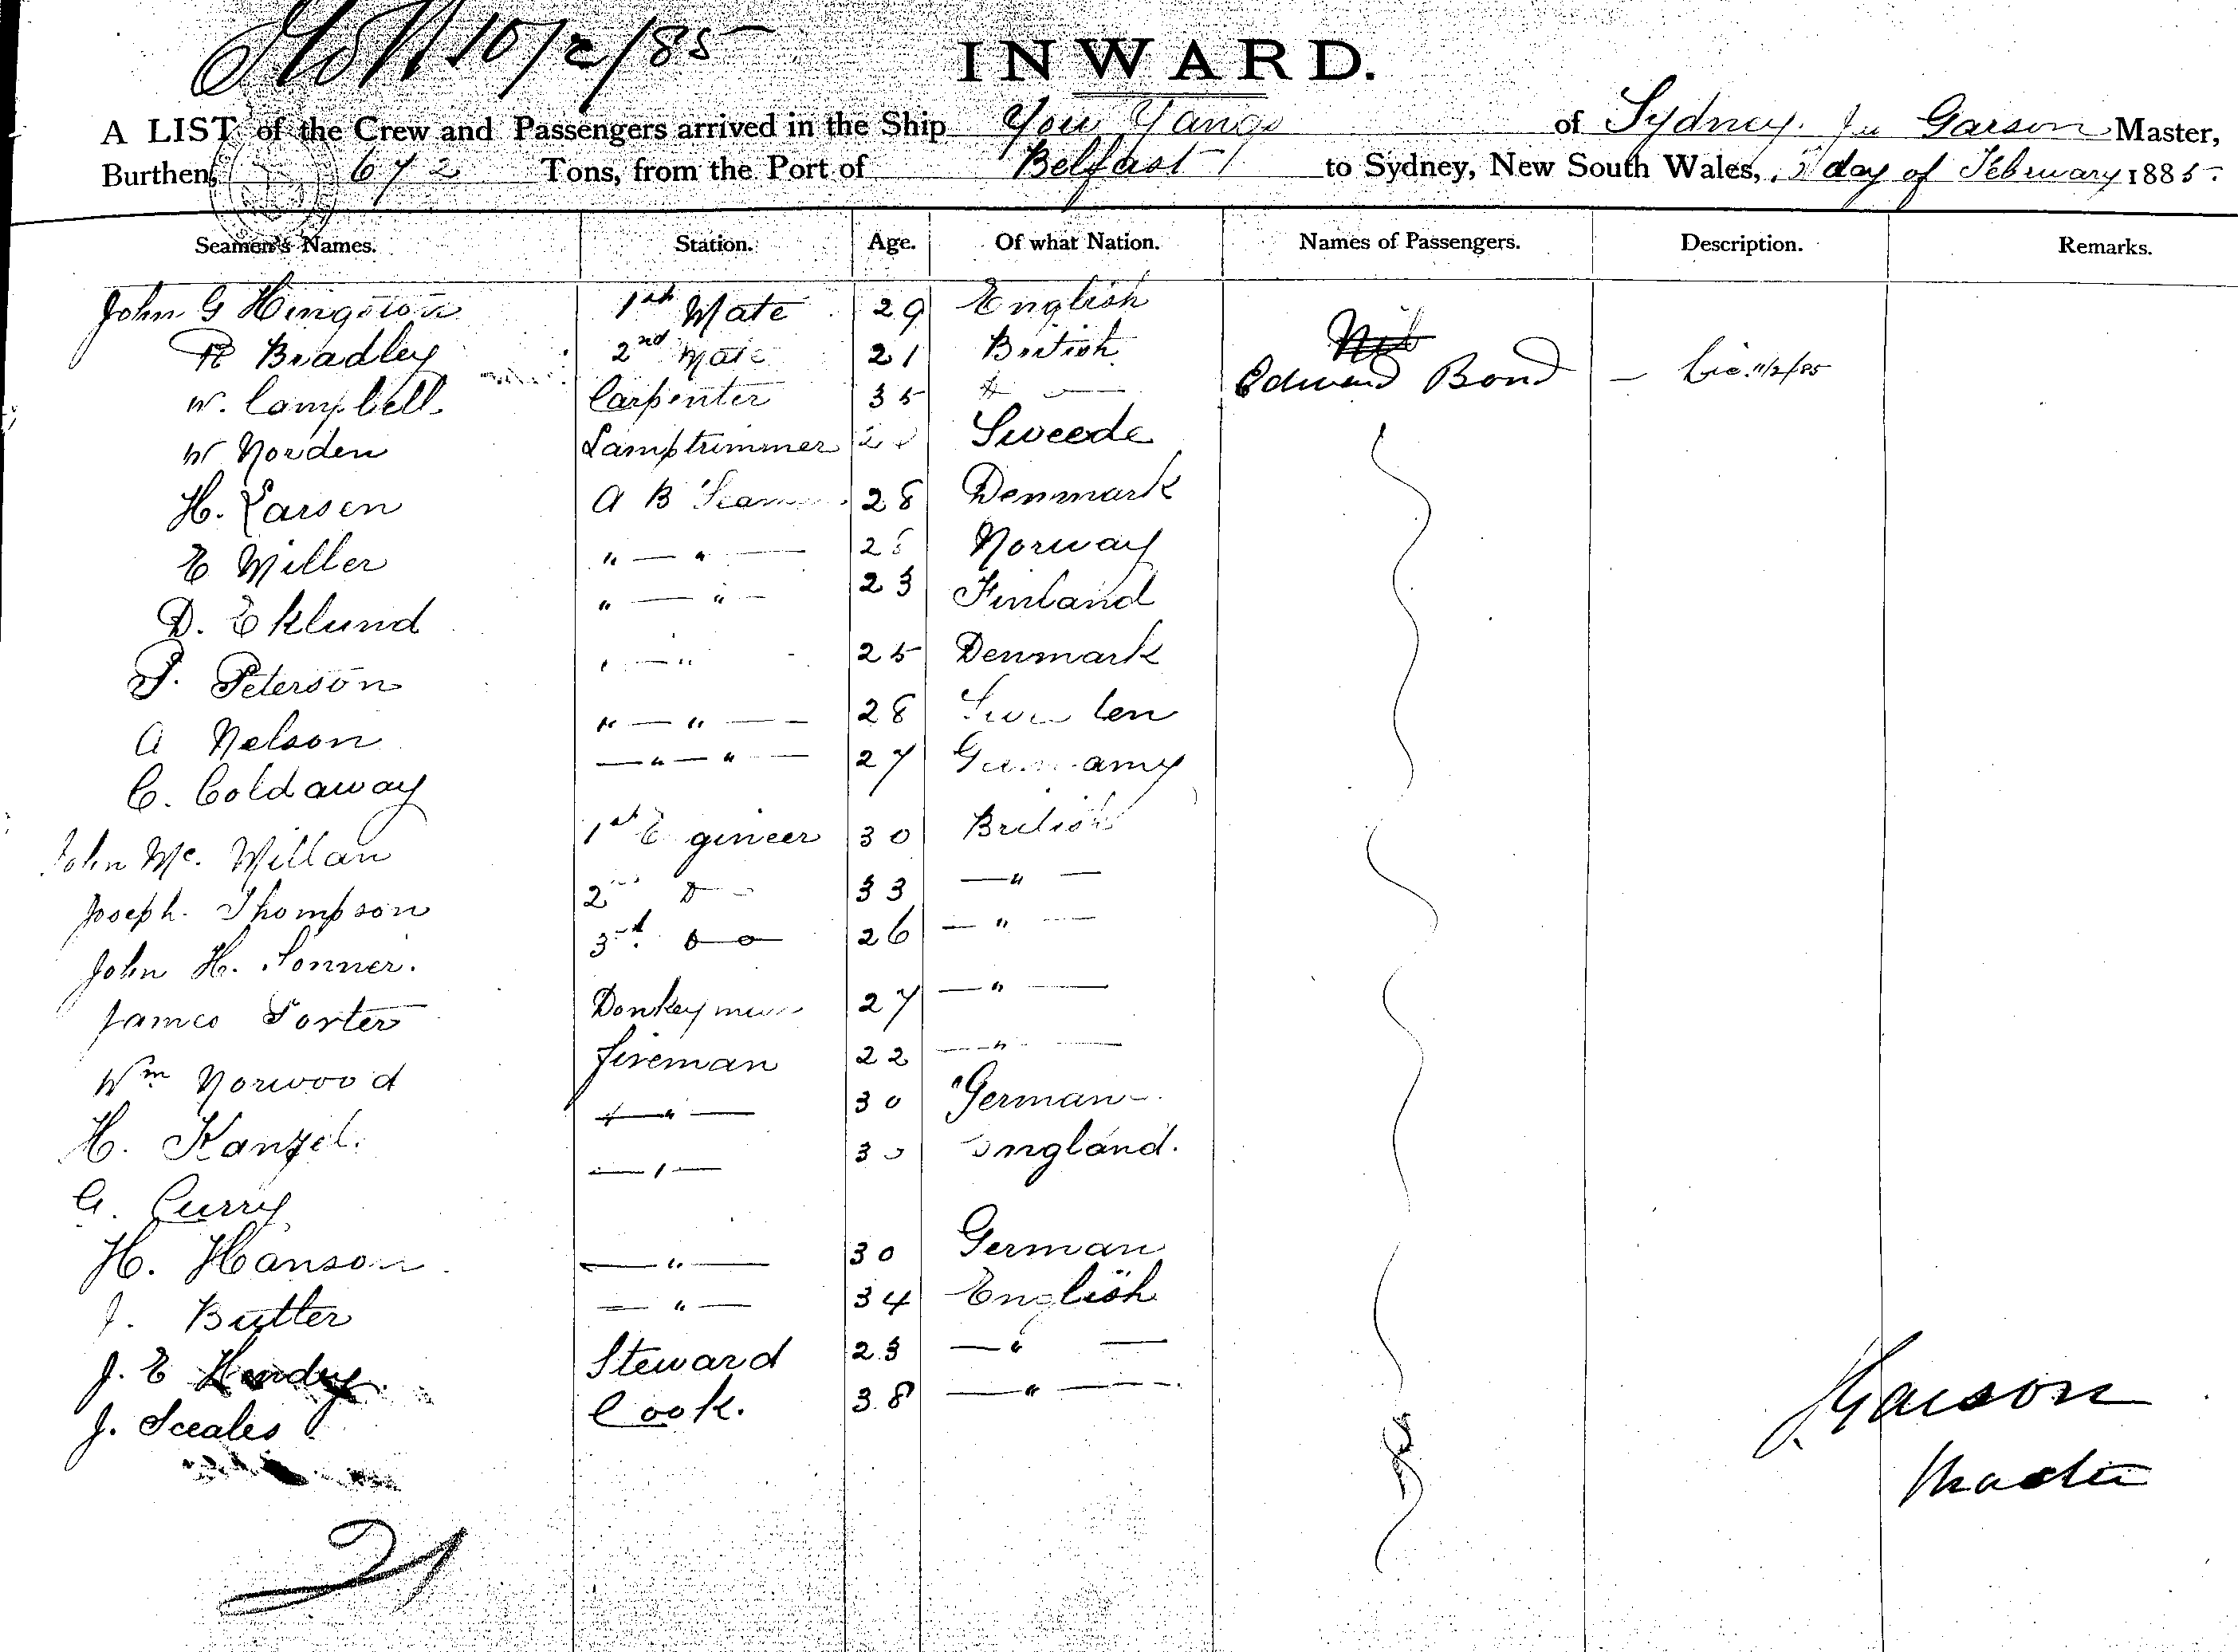 10/2/85
INWARD.
A LIST of the Crew and Passengers arrived in the Ship You Yangs of Sydney. Garson Master,
Burthen, 672 Tons, from the Port of Belfast to Sydney, New South Wales, day of February 1885.
Seamen's Names. Station. Age. Of what Nation. Names of Passengers. Description. Remarks.
John G Hingston 1st Mate 29 English
R Bradley 2nd Mate 21 British Nil
W. Campbell Carpenter 35 " — Edward Bond — 11/2/85
W Norden Lamptrimmer Sweede
H. Larsen A B Seaman 28 Denmark
E Miller " — " — Norway
D. Eklund " — " — 23 Finland
P. Peterson " — " 25 Denmark
A Nelson " — " — 28 Sweden
C. Coldaway — " — " — 27 Germany
John Mc. Millan 1st Engineer 30 British
Joseph. Thompson 2nd Do 33 — " —
John H. Sonner. 3rd Do 26 — " —
James Porter Donkeyman 27 — " —
Wm Norwood fireman 22 — " —
H. Kanzel. — " — 30 German
G. Curry — " — 30 England.
H. Hanson — " — 30 German
J. Butler — " — 34 English
J. E Hendry Steward 23 — " —
J. Sceales Cook. 38 — " —
J Garson
Master
21